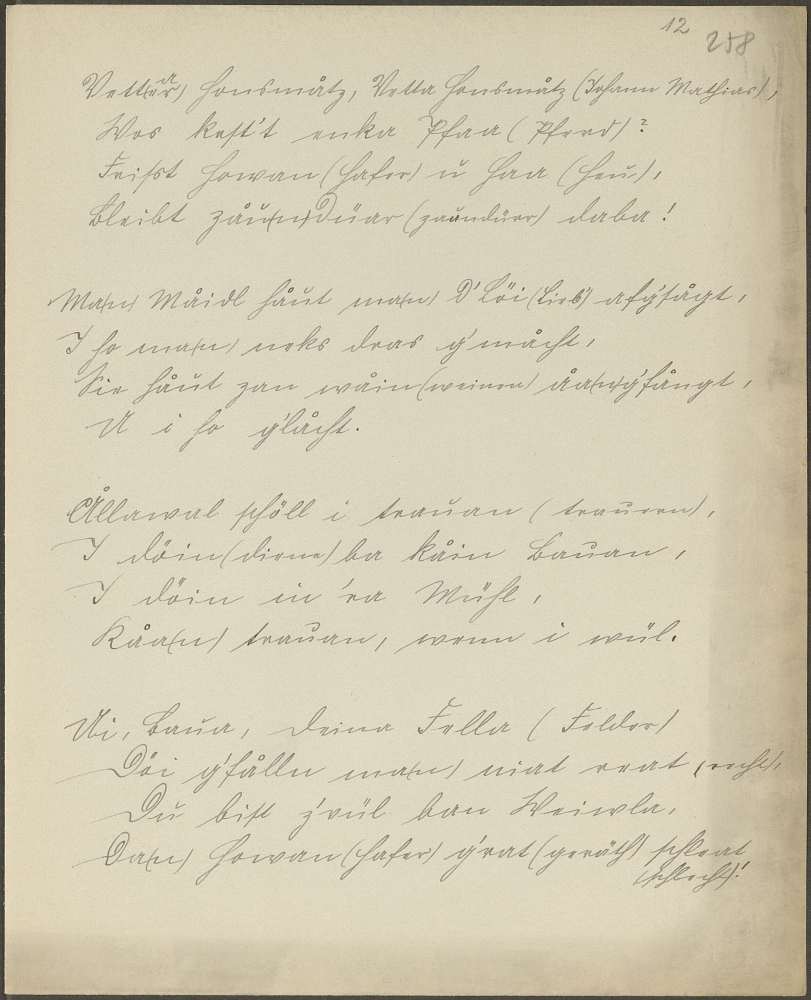 12
258
Vett(er)a Honsmåtz, Vetta Honsmåtz (Johann Mathias),
Wos kost't enka Pfaa (Pferd)?
Frißt Howan (Hafer) u Haa (Heu),
Bleibt zåu(n)düar (zaundürr) daba!
Ma(n) Måidl håut ma(n) d'Löi (Lieb) afg'sågt,
I ho ma(n) neks dras g'måcht,
Sie håut zan wåin (weinen) åa(n)g'fångt,
U i ho g'låcht.
Ållawal schöll i trauan (trauern),
I döin (diene) ba kåin Bauan,
I döin in 'ra Mühl,
Kåa(n) trauan, wenn i wül.
Ui, Baua, deina Fella (Felder)
Döi g'fålln ma(n) niat reat (recht),
Du bist z'vül ban Weiwla,
Da(n) Howan (Hafer) g'rat (geräth) schleat
(schlecht)!